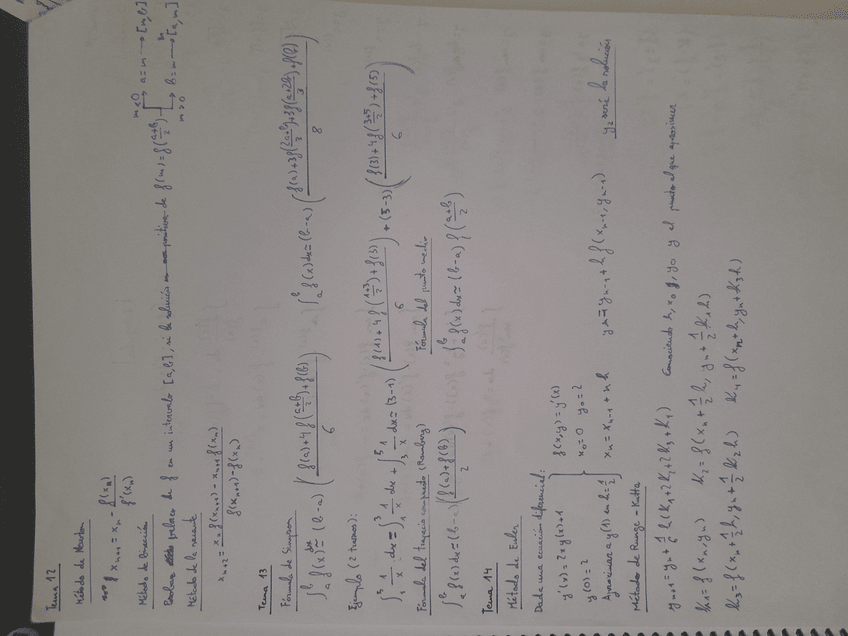 Tema 12
Método de Newton
x_{n+1} = x_n - f(x_n)/f'(x_n)
Método de Bisección
f en un intervalo [a,b], si la solución positiva de f(m) = f((a+b)/2) m<0 → a = m → [m,b]
m>0 → b = m → [a,m]
Método de la secante
x_{n+2} = (x_n f(x_{n+1}) - x_{n+1} f(x_n)) / (f(x_{n+1}) - f(x_n))
Tema 13
Fórmula de Simpson
∫_a^b f(x) dx ≃ (b-a) ((f(a) + 4f((a+b)/2) + f(b))/6) ∫_a^b f(x) dx ≃ (b-a) ((f(a) + 3f((2a+b)/3) + 3f((a+2b)/3) + f(b))/8)
Ejemplo (2 tramos):
∫_1^5 1/x dx = ∫_1^3 1/x dx + ∫_3^5 1/x dx ≃ (3-1) ((f(1) + 4f((1+3)/2) + f(3))/6) + (5-3) ((f(3) + 4f((3+5)/2) + f(5))/6)
Fórmula del trapecio compuesto (Romberg) Fórmula del punto medio
∫_a^b f(x) dx ≃ (b-a) ((f(a) + f(b))/2) ∫_a^b f(x) dx ≃ (b-a) f((a+b)/2)
Tema 14
Método de Euler
Dada una ecuación diferencial:
y'(x) = 2xy(x)+1 f(x,y) = y'(x)
y(0) = 2 x_0 = 0 y_0 = 2
Aproximar a y(1) en h = 1/2 x_n = x_{n-1} + nh y_n = y_{n-1} + h f(x_{n-1}, y_{n-1}) y_2 será la solución
Método de Runge-Kutta
y_{n+1} = y_n + 1/6 h (K_1 + 2K_2 + 2K_3 + K_4) Conociendo h, x_0, y_0 y el punto al que aproximar
K_1 = f(x_n, y_n) K_2 = f(x_n + 1/2 h, y_n + 1/2 K_1 h)
K_3 = f(x_n + 1/2 h, y_n + 1/2 K_2 h) K_4 = f(x_n + h, y_n + K_3 h)